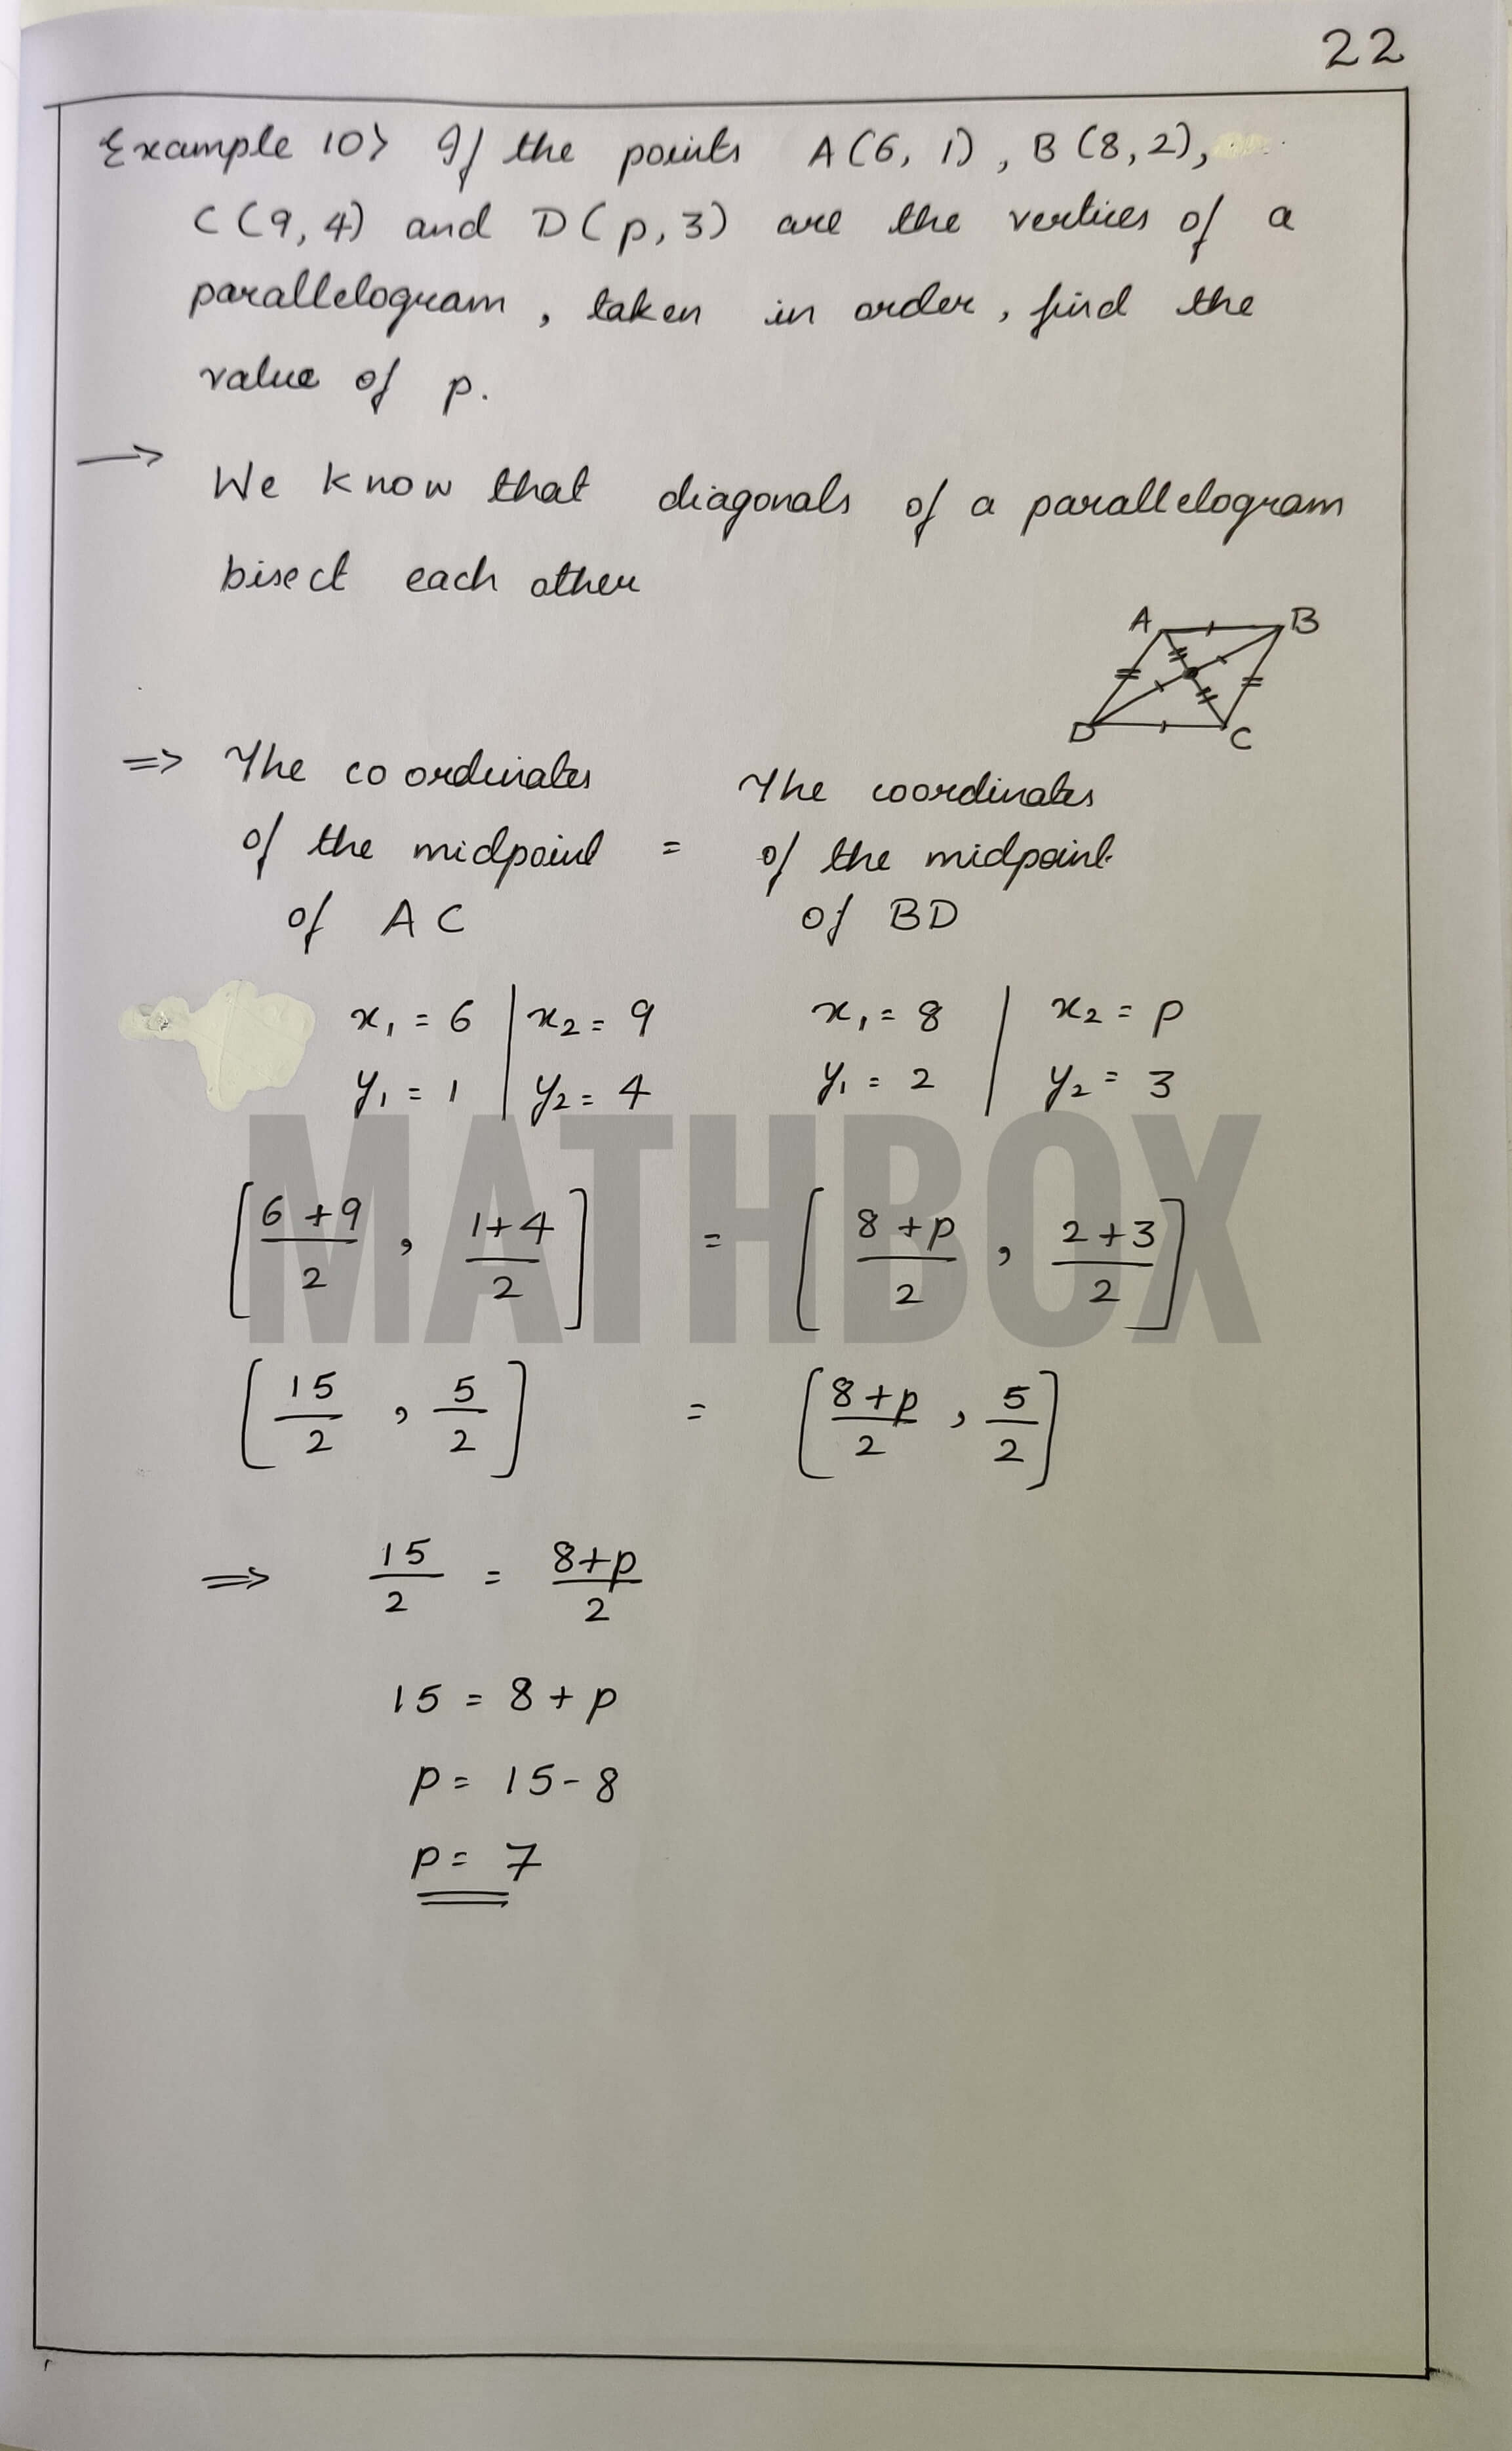 22
Example 10> If the points A(6, 1), B(8,2),
C(9,4) and D(p,3) are the vertices of a
parallelogram, taken in order, find the
value of p.
→
We know that diagonals of a parallelogram
bisect each other
A B
D C
=> The coordinates The coordinates
of the midpoint = of the midpoint
of AC of BD
x₁ = 6 | x₂ = 9 x₁ = 8 | x₂ = p
y₁ = 1 | y₂ = 4 y₁ = 2 | y₂ = 3
MATHBOX
[(6+9)/2, (1+4)/2] = [(8+p)/2, (2+3)/2]
[15/2, 5/2] = [(8+p)/2, 5/2]
=> 15/2 = (8+p)/2
15 = 8+p
p = 15-8
p = 7